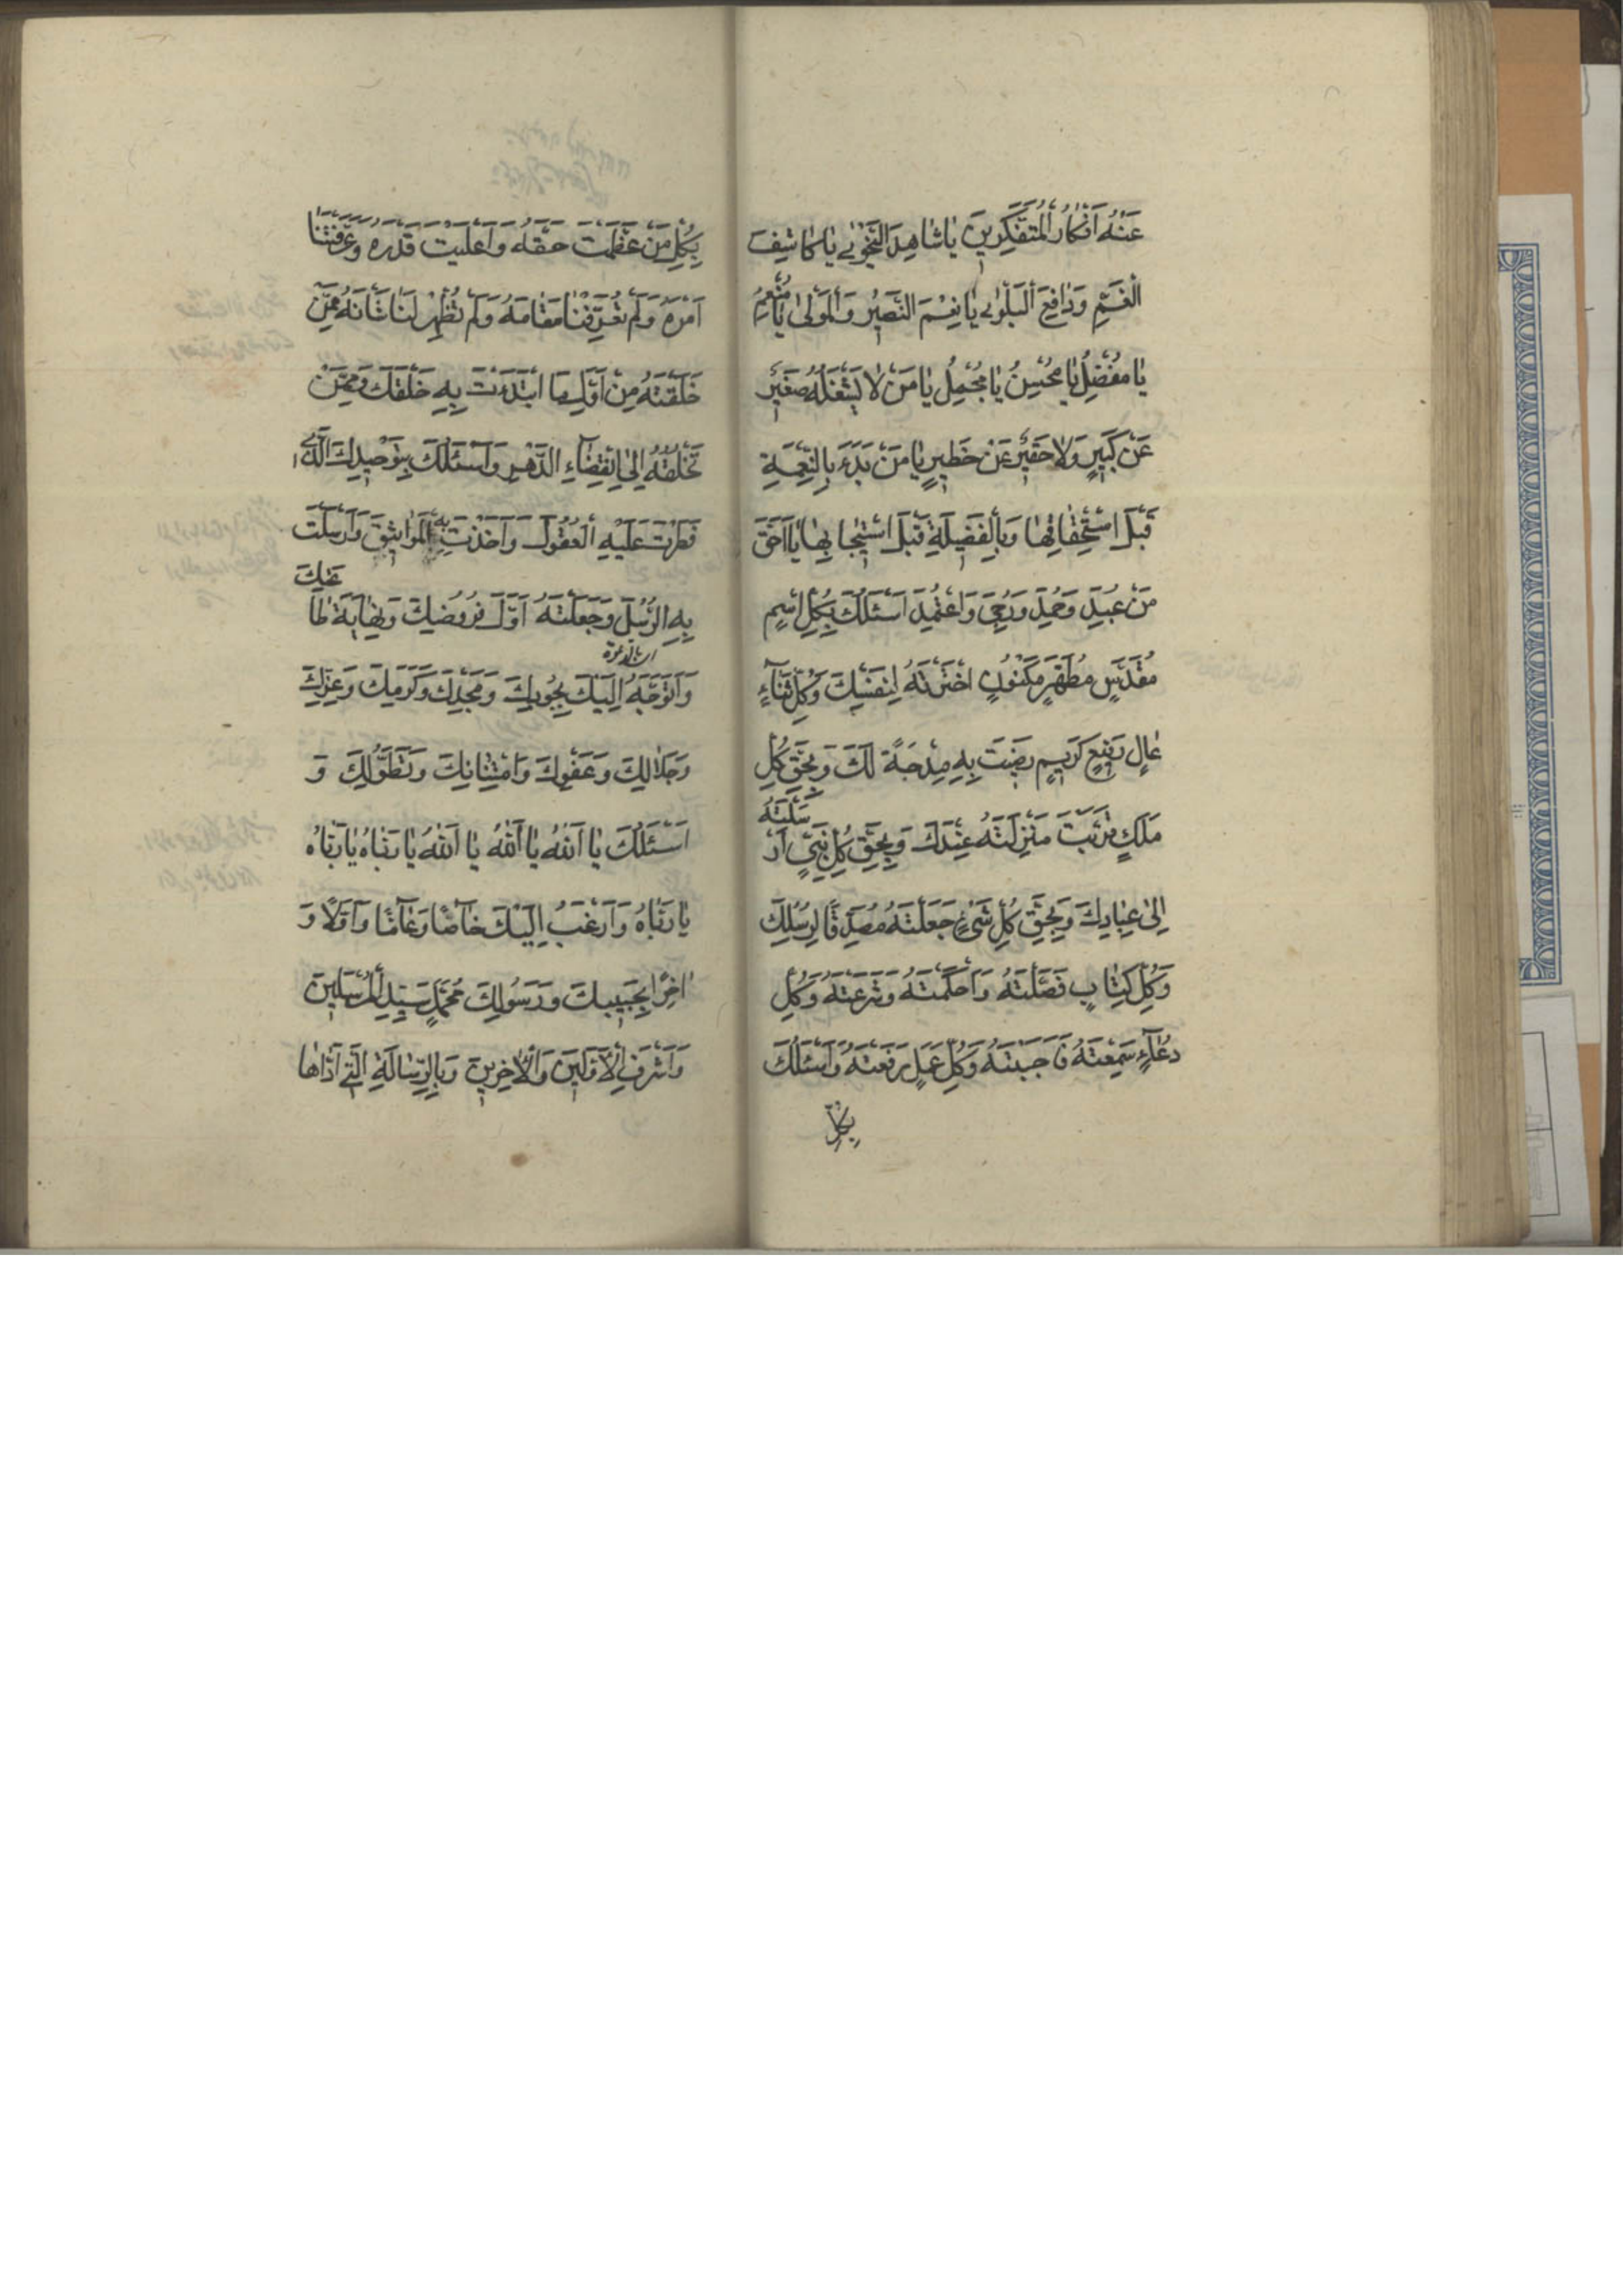 عَنْهُ اَفْكارُ الْمُتَفَكِّرينَ يا شاهِدَ النَّجْوٰى يا كاشِفَ
الْغَمِّ وَدافِعَ الْبَلْوٰى يا نِعْمَ النَّصيرُ وَالْمَوْلىٰ يا مُنْعِمُ
يا مُفْضِلُ يا مُحْسِنُ يا مُجْمِلُ يا مَنْ لا يَشْغَلُهُ صَغيرٌ
عَنْ كَبيرٍ وَلا حَقيرٌ عَنْ خَطيرٍ يا مَنْ بَدَءَ بِالنِّعْمَةِ
قَبْلَ اسْتِحْقاقِها وَبِالْفَضيلَةِ قَبْلَ اسْتيجابِها يا اَحَقَّ
مَنْ عُبِدَ وَحُمِدَ وَرُجِىَ وَاعْتُمِدَ اَسْئَلُكَ بِكُلِّ اسْمٍ
مُقَدَّسٍ مُطَهَّرٍ مَكْنُونٍ اخْتَرْتَهُ لِنَفْسِكَ وَكُلِّ ثَنآءٍ
عالٍ رَفيعٍ كَريمٍ رَضيتَ بِهِ مِدْحَةً لَكَ وَبِحَقِّ كُلِّ
مَلَكٍ قَرُبَتْ مَنْزِلَتُهُ عِنْدَكَ وَبِحَقِّ كُلِّ نَبِىٍّ اَرْسَلْتَهُ
اِلىٰ عِبادِكَ وَبِحَقِّ كُلِّ شَىْءٍ جَعَلْتَهُ مُصَدِّقًا لِرُسُلِكَ
وَكُلِّ كِتابٍ فَصَّلْتَهُ وَاَحْكَمْتَهُ وَشَرَعْتَهُ وَكُلِّ
دُعآءٍ سَمِعْتَهُ فَاَجَبْتَهُ وَكُلِّ عَمَلٍ رَفَعْتَهُ وَاَسْئَلُكَ
بِكُلِّ
بِكُلِّ مَنْ عَظَّمْتَ حَقَّهُ وَاَعْلَيْتَ قَدْرَهُ وَعَرَّفْتَنا
اَمْرَهُ وَلَمْ تُعَرِّفْنا مَقامَهُ وَلَمْ تُظْهِرْ لَنا شَانَهُ مِمَّنْ
خَلَقْتَهُ مِنْ اَوَّلِ مَا ابْتَدَءْتَ بِهِ خَلْقَكَ وَمِمَّنْ
تَخْلُقُهُ اِلىَ انْقِضآءِ الدَّهْرِ وَاَسْئَلُكَ بِتَوْحيدِكَ الَّذى
فَطَرْتَ عَلَيْهِ الْعُقُولَ وَاَخَذْتَ بِهِ الْمَواثيقَ وَاَرْسَلْتَ
بِهِ الرُّسُلَ وَجَعَلْتَهُ اَوَّلَ فُرُوضِكَ وَنِهايَةَ طاعَتِكَ
وَاَتَوَجَّهُ اِلَيْكَ بِجُودِكَ وَمَجْدِكَ وَكَرَمِكَ وَعِزِّكَ
وَجَلالِكَ وَعَفْوِكَ وَامْتِنانِكَ وَتَطَوُّلِكَ وَ
اَسْئَلُكَ يا اَللهُ يا اَللهُ يا اَللهُ يا رَبّاهُ يا رَبّاهُ
يا رَبّاهُ وَاَرْغَبُ اِلَيْكَ خآصًّا وَعآمًّا وَاَوَّلًا وَ
اٰخِرًا بِحَبيبِكَ وَرَسُولِكَ مُحَمَّدٍ سَيِّدِ الْمُرْسَلينَ
وَاَشْرَفِ الْاَوَّلينَ وَالْاٰخِرينَ وَبِالرِّسالَةِ الَّتى اَدّاها